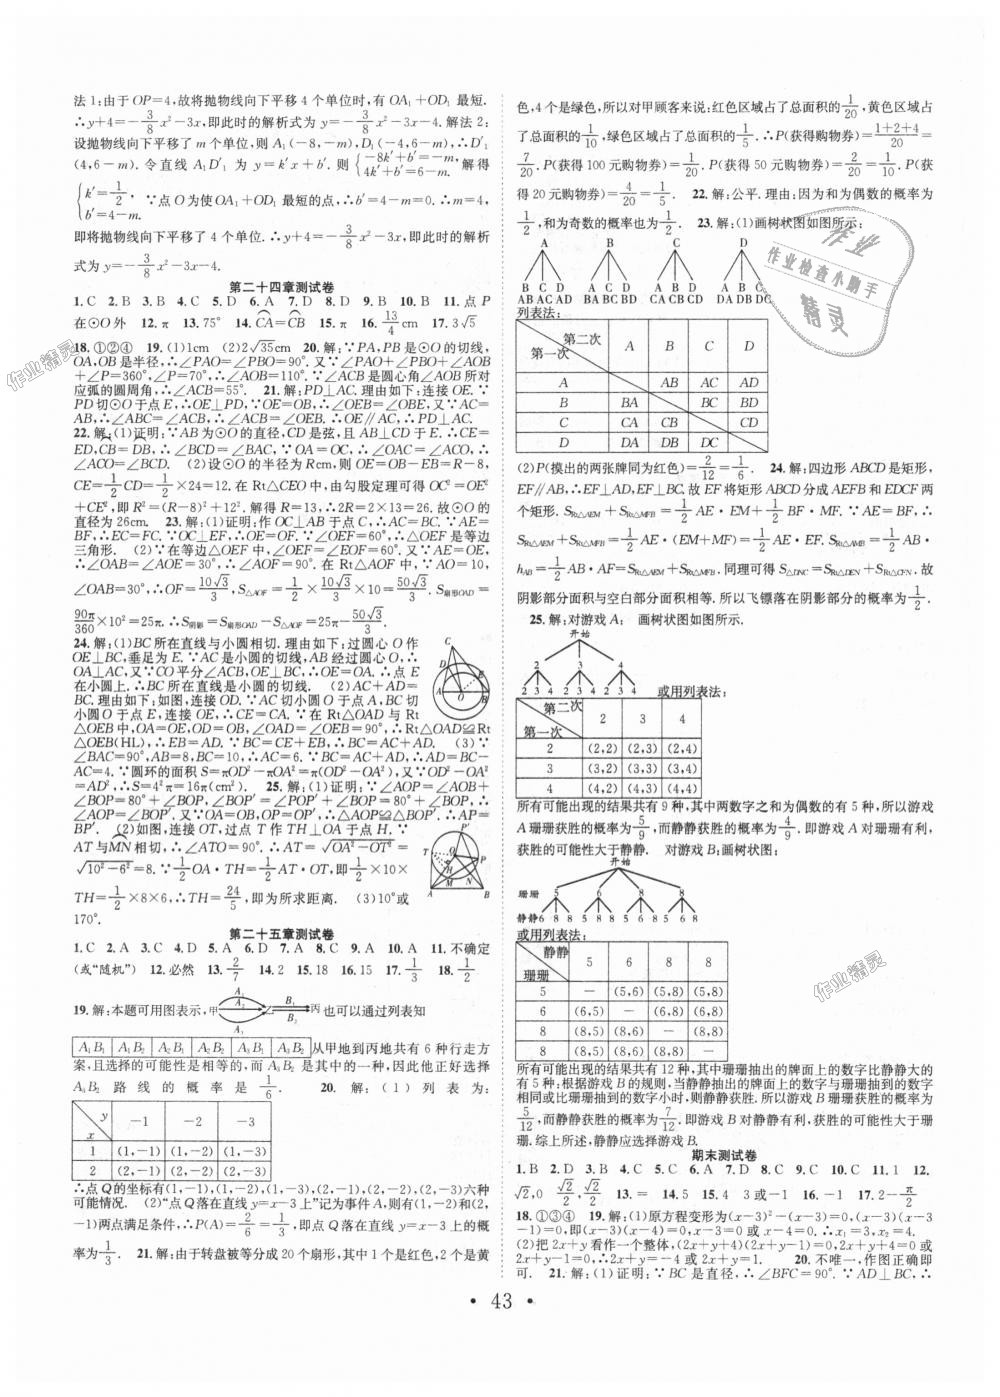 法1:由于OP=4,故将抛物线向下平移4个单位时,有OA₁+OD₁最短.
∴y+4=-3/8x²-3x,即此时的解析式为y=-3/8x²-3x-4. 解法2:
设抛物线向下平移了m个单位,则A₁(-8,-m),D₁(-4,6-m),∴D′₁
(4,6-m). 令直线A₁D′₁为y=k′x+b′. 则{-8k′+b′=-m, 4k′+b′=6-m. 解得
{k′=1/2, b′=4-m. ∵点O为使OA₁+OD₁最短的点,∴b′=4-m=0. ∴m=4,
即将抛物线向下平移了4个单位. ∴y+4=-3/8x²-3x,即此时的解析
式为y=-3/8x²-3x-4.
第二十四章测试卷
1.C 2.B 3.B 4.C 5.D 6.A 7.D 8.D 9.B 10.B 11.点P
在⊙O外 12.π 13.75° 14.CA=CB 15.4 16.13/4cm 17.3√5
18.①②④ 19.(1)1cm (2)2√35cm 20.解:∵PA,PB是⊙O的切线,
OA,OB是半径,∴∠PAO=∠PBO=90°. 又∵∠PAO+∠PBO+∠AOB
+∠P=360°,∠P=70°,∴∠AOB=110°. ∵∠ACB是圆心角∠AOB所对
应弧的圆周角,∴∠ACB=55°. 21.解:PD⊥AC. 理由如下:连接OE. ∵
PD切⊙O于点E,∴OE⊥PD,∵OE=OB,∴∠OEB=∠OBE,又∵AC=
AB,∴∠ABC=∠ACB,∴∠ACB=∠OEB. ∴OE∥AC,∴PD⊥AC.
22.解:(1)证明:∵AB为⊙O的直径,CD是弦,且AB⊥CD于E. ∴CE=
ED,CB=DB,∴∠BCD=∠BAC,∵OA=OC,∴∠OAC=∠ACO,∴
∠ACO=∠BCD. (2)设⊙O的半径为Rcm,则OE=OB-EB=R-8,
CE=1/2CD=1/2×24=12. 在Rt△CEO中,由勾股定理可得OC²=OE²
+CE²,即R²=(R-8)²+12². 解得R=13,∴2R=2×13=26. 故⊙O的
直径为26cm. 23.解:(1)证明:作OC⊥AB于点C,∴AC=BC. ∵AE=
BF,∴EC=FC. ∵OC⊥EF,∴OE=OF. ∵∠OEF=60°,∴△OEF是等边
三角形. (2)∵在等边△OEF中,∠OEF=∠EOF=60°. 又∵AE=OE,
∴∠OAB=∠AOE=30°,∴∠AOF=90°. 在Rt△AOF中,∵AO=10,
∠OAB=30°,∴OF=10√3/3,S△AOF=1/2×10√3/3×10=50√3/3. S扇形OAD=
90π/360×10²=25π. ∴S阴影=S扇形OAD-S△AOF=25π-50√3/3.
24.解:(1)BC所在直线与小圆相切. 理由如下:过圆心O作
OE⊥BC,垂足为E. ∵AC是小圆的切线,AB经过圆心O,∴
OA⊥AC,又∵CO平分∠ACB,OE⊥BC,∴OE=OA. ∴点E
在小圆上. ∴BC所在直线是小圆的切线. (2)AC+AD=
BC. 理由如下:如图,连接OD. ∵AC切小圆O于点A,BC切
小圆O于点E,∴CE=CA. ∵在Rt△OAD与Rt
△OEB中,OA=OE,OD=OB,∠OAD=∠OEB=90°,∴Rt△OAD≌Rt
△OEB(HL),∴EB=AD. ∵BC=CE+EB,∴BC=AC+AD. (3)∵
∠BAC=90°,AB=8,BC=10,∴AC=6. ∵BC=AC+AD,∴AD=BC-
AC=4. ∵圆环的面积S=πOD²-πOA²=π(OD²-OA²),又∵OD²-OA²
=AD²,∴S=4²π=16π(cm²). 25.解:(1)证明:∵∠AOP=∠AOB+
∠BOP=80°+∠BOP,∠BOP′=∠POP′+∠BOP=80°+∠BOP,∴
∠AOP=∠BOP′. 又∵OA=OB,OP=OP′,∴△AOP≌△BOP′. ∴AP=
BP′. (2)如图,连接OT,过点T作TH⊥OA于点H. ∵
AT与MN相切,∴∠ATO=90°. ∴AT=√OA²-OT²=
√10²-6²=8. ∵1/2OA·TH=1/2AT·OT,即1/2×10×
TH=1/2×8×6,∴TH=24/5,即为所求距离. (3)10°或
170°.
第二十五章测试卷
1.C 2.A 3.C 4.D 5.A 6.D 7.A 8.C 9.C 10.A 11.不确定
(或“随机”) 12.必然 13.2/7 14.2 15.18 16.15 17.1/3 18.1/2
19.解:本题可用图表示,甲 A₁ A₂ A₃ 乙 B₁ B₂ 丙也可以通过列表知
A₁B₁ A₁B₂ A₂B₁ A₂B₂ A₃B₁ A₃B₂ 从甲地到丙地共有6种行走方
案,且选择的可能性是相等的,而A₁B₂是其中的一种,因此他正好选择
A₁B₂路线的概率是1/6. 20.解:(1)列表为:
x y -1 -2 -3
1 (1,-1) (1,-2) (1,-3)
2 (2,-1) (2,-2) (2,-3)
∴点Q的坐标有(1,-1),(1,-2),(1,-3),(2,-1),(2,-2),(2,-3)六种
可能情况. (2)“点Q落在直线y=x-3上”记为事件A,则有(1,-2)和(2,
-1)两点满足条件,∴P(A)=2/6=1/3,即点Q落在直线y=x-3上的概
率为1/3. 21.解:由于转盘被等分成20个扇形,其中1个是红色,2个是黄
色,4个是绿色,所以对甲顾客来说:红色区域占了总面积的1/20,黄色区域占
了总面积的1/10,绿色区域占了总面积的1/5. ∴P(获得购物券)=1+2+4/20=
7/20. P(获得100元购物券)=1/20. P(获得50元购物券)=2/20=1/10. P(获
得20元购物券)=4/20=1/5. 22.解:公平. 理由:因为和为偶数的概率为
1/2,和为奇数的概率也为1/2. 23.解:(1)画树状图如图所示:
A B C D
B C D A C D A B D A B C
AB AC AD BA BC BD CA CB CD DA DB DC
列表法:
第一次 第二次 A B C D
A AB AC AD
B BA BC BD
C CA CB CD
D DA DB DC
(2)P(摸出的两张牌同为红色)=2/12=1/6. 24.解:四边形ABCD是矩形,
EF∥AB,∴EF⊥AD,EF⊥BC. 故EF将矩形ABCD分成AEFB和EDCF两
个矩形. SRt△AEM+SRt△MFB=1/2AE·EM+1/2BF·MF. ∵AE=BF,∴
SRt△AEM+SRt△MFB=1/2AE·(EM+MF)=1/2AE·EF. SRt△AMB=1/2AB·
hAB=1/2AB·AF=SRt△AEM+SRt△MFB,同理可得S△DNC=SRt△DEN+SRt△CFN,故
阴影部分面积与空白部分面积相等. 所以飞镖落在阴影部分的概率为1/2.
25.解:对游戏A: 画树状图如图所示.
开始
2 3 4
2 3 4 2 3 4 2 3 4 或用列表法:
第一次 第二次 2 3 4
2 (2,2) (2,3) (2,4)
3 (3,2) (3,3) (3,4)
4 (4,2) (4,3) (4,4)
所有可能出现的结果共有9种,其中两数字之和为偶数的有5种,所以游戏
A珊珊获胜的概率为5/9,而静静获胜的概率为4/9. 即游戏A对珊珊有利,
获胜的可能性大于静静. 对游戏B:画树状图:
开始
珊珊 5 6 8 8
静静 6 8 8 5 8 8 5 6 8 5 6 8
或用列表法:
珊珊 静静 5 6 8 8
5 — (5,6) (5,8) (5,8)
6 (6,5) — (6,8) (6,8)
8 (8,5) (8,6) — (8,8)
8 (8,5) (8,6) (8,8) —
所有可能出现的结果共有12种,其中珊珊抽出的牌面上的数字比静静大的
有5种;根据游戏B的规则,当静静抽出的牌面上的数字与珊珊抽到的数字
相同或比珊珊抽到的数字小时,则静静获胜. 所以游戏B珊珊获胜的概率为
5/12,而静静获胜的概率为7/12. 即游戏B对静静有利,获胜的可能性大于珊
珊. 综上所述,静静应选择游戏B.
期末测试卷
1.B 2.D 3.B 4.C 5.C 6.A 7.D 8.C 9.C 10.C 11.1 12.
√2,0 √2/2,√2/2 13.= 14.5 15.4 3或-1 16.-1 17.2-π/2
18.①③④ 19.解:(1)原方程变形为(x-3)²-(x-3)=0,(x-3)(x-3
-1)=0,即(x-3)(x-4)=0,x-3=0或x-4=0. ∴x₁=3,x₂=4.
(2)把2x+y看作一个整体,(2x+y+4)(2x+y-1)=0,2x+y+4=0或
2x+y-1=0,∴2x+y=-4或2x+y=1. 20.不唯一,作图正确即
可. 21.解:(1)证明:∵BC是直径,∴∠BFC=90°. ∵AD⊥BC,∴
· 43 ·
作业
作业检查小助手
精灵
作业精灵
作业精灵